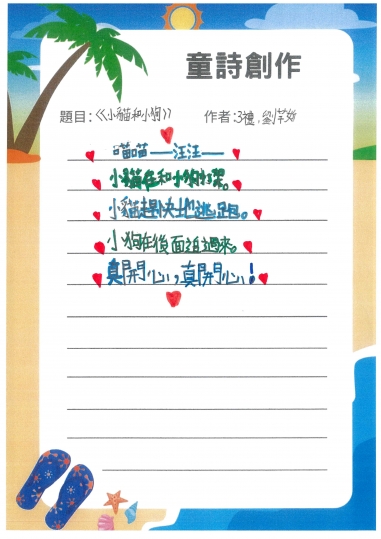 童詩創作
題目:《小貓和小狗》 作者:3禮,劉芊妤
喵喵——汪汪——
小貓在和小狗打架。
小貓趕快地逃跑。
小狗在後面追過來。
真開心,真開心!